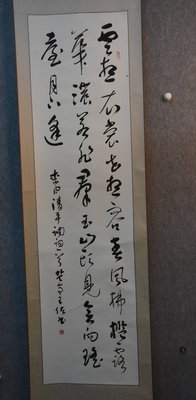 雲想衣裳花想容春風拂檻露
華濃若非羣玉山頭見會向瑤
臺月下逢
李白清平調詞